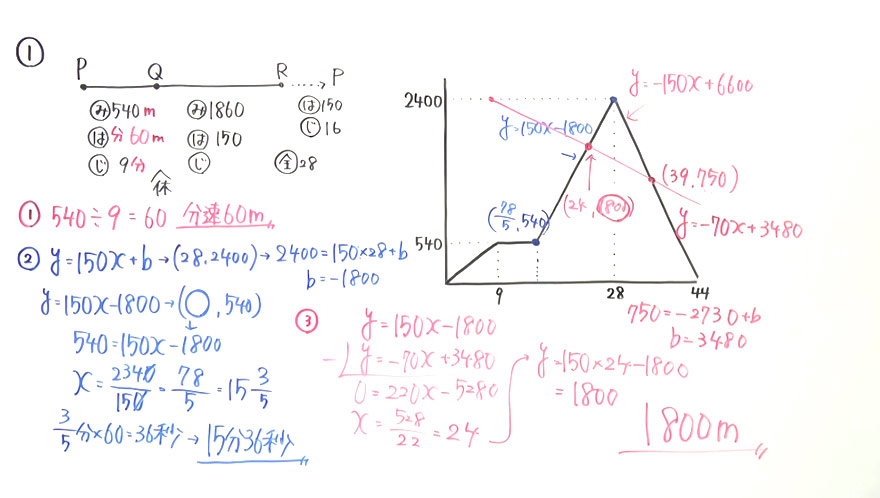 ①
P Q R P
み540m み1860 は150
は分60m は150 じ16
じ9分 じ 全28
休
① 540÷9=60 分速60m
② y=150x+b→(28,2400)→2400=150×28+b
b=-1800
y=150x-1800→(◯,540)
↓
540=150x-1800
x=2340/150=78/5=15 3/5
3/5分×60=36秒→15分36秒
y=-150x+6600
2400
y=150x-1800
(39,750)
(24,1800)
(78/5,540)
y=-70x+3480
540
9 28 44
750=-2730+b
b=3480
③ y=150x-1800
-) y=-70x+3480
0=220x-5280
x=528/22=24
y=150×24-1800
=1800
1800m